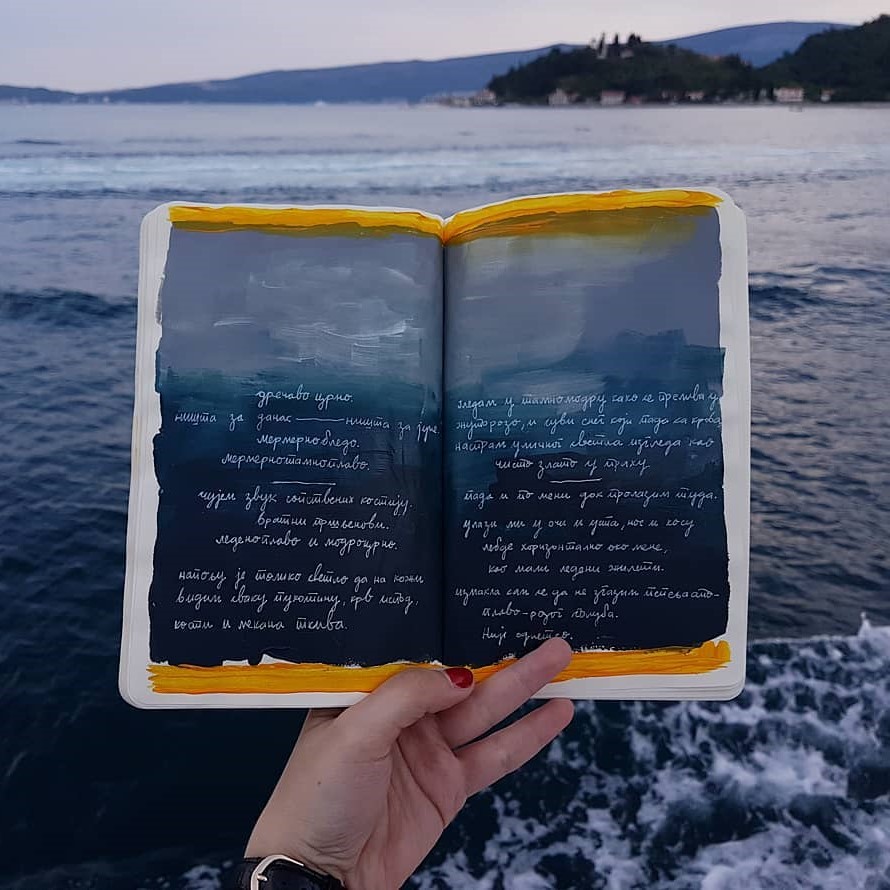 дречаво црно.
ништа за данас — ништа за јуче.
мермернобледо.
мермернотамноплаво.
чујем звук сопствених костију.
вратни пршљенови.
леденоплаво и модроцрно.
напољу је толико светло да на кожи
видим сваку пукотину, крв испод,
кости и мекана ткива.
гледам у тамномодру како се прелива у
жуторозо, и суви снег који пада са крова
наспрам уличног светла изгледа као
чисто злато у праху
пада и по мени док пролазим туда.
улази ми у очи и уста, нос и косу
лебде хоризонтално око мене,
као мали ледени жилети.
измакла сам се да не згазим пепељасто-
плаво-розог голуба.
Није одлетео.